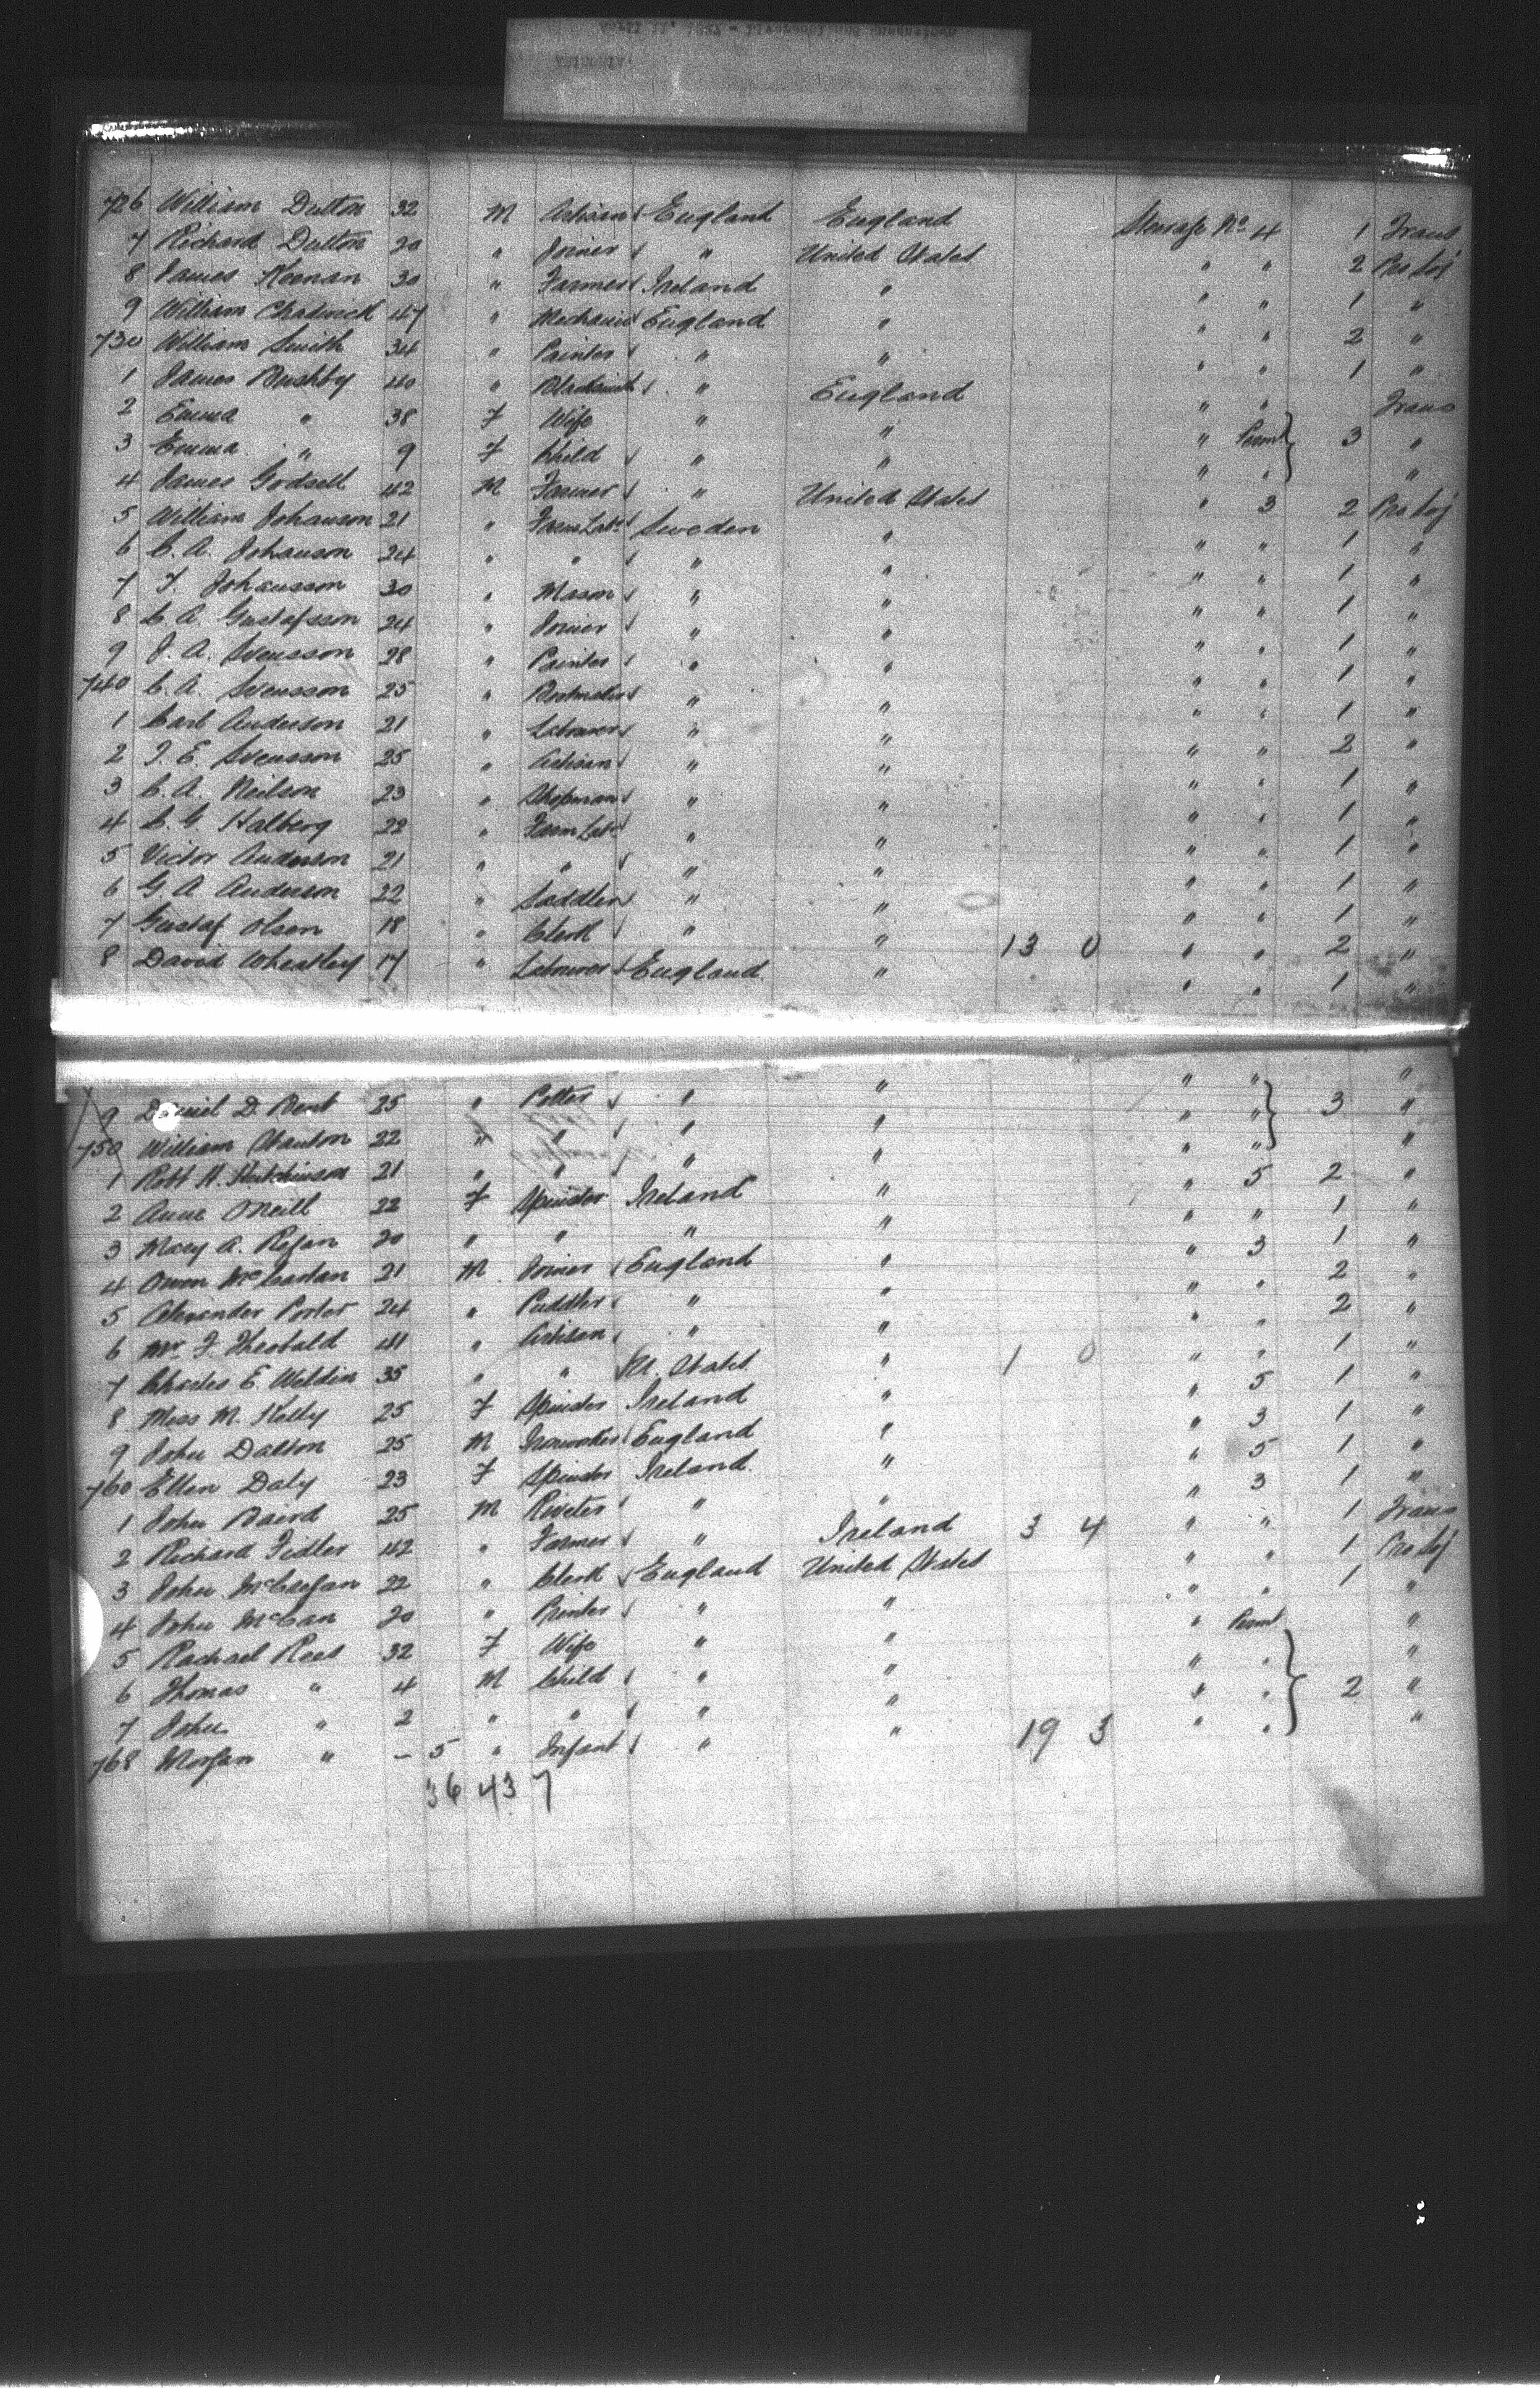 726 William Dutton 32 M Artisan England England Steerage No 4 1 Trans
7 Richard Dutton 20 " Joiner " United States " " 2 Pro Soj
8 James Keenan 30 " Farmer Ireland " " " 1 "
9 William Chadwick 47 " Mechanic England " " " 2 "
730 William Smith 34 " Painter " " " " 1 "
1 James Bushby 40 " Blacksmith " England " " Trans
2 Emma " 38 F Wife " " " Perm 3 "
3 Emma " 9 F Child " " " " "
4 James Godsell 42 M Farmer " United States " 3 2 Pro Soj
5 William Johanson 21 " Farm Labr Sweden " " " 1 "
6 C. A. Johanson 24 " " " " " " 1 "
7 F. Johansson 30 " Mason " " " " 1 "
8 C. A. Gustafsson 24 " Joiner " " " " 1 "
9 J. A. Svensson 28 " Painter " " " " 1 "
740 C. A. Svensson 25 " " " " " 1 "
1 Carl Anderson 21 " Labourer " " " " 2 "
2 J. E. Svensson 25 " Artisan " " " " 1 "
3 C. A. Neilson 23 " Shopman " " " " 1 "
4 C. G. Halberg 22 " Farm Labr " " " " 1 "
5 Victor Anderson 21 " " " " " " 1 "
6 G. A. Anderson 22 " Saddler " " " " 1 "
7 Gustaf Olsen 18 " Clerk " " 13 0 " " 2 "
8 David Wheatley 17 " Labourer England " " " 1 "
9 Daniel D. Bent 25 " Potter " " " " 3 "
750 William Stanton 22 " " " " " " "
1 Robt H. Hutchinson 21 " " " " " " "
2 Anne O'Neill 22 F Spinster Ireland " " 5 2 "
3 Mary A. Regan 20 " " " " " " 1 "
4 Owen McCartan 21 M Joiner England " " 3 1 "
5 Alexander Porter 24 " Puddler " " " " 2 "
6 Mr F. Theobald 41 " Artisan " " " " 2 "
7 Charles E. Weldin 35 " " U. States " 1 0 " " 1 "
8 Miss M. Kelly 25 F Spinster Ireland " " 5 1 "
9 John Dalton 25 M Ironworker England " " 3 1 "
760 Ellen Daly 23 F Spinster Ireland " " 5 1 "
1 John Baird 25 M Riveter " " " 3 1 "
2 Richard Fidler 42 " Farmer " Ireland 3 4 " " 1 Trans
3 John McGaegan 22 " Clerk England United States " " 1 Pro Soj
4 John McCan 20 " Printer " " " " 1 "
5 Rachael Rees 32 F Wife " " " Perm "
6 Thomas " 4 M Child " " " " 2 "
7 John " 2 " " " " " " "
768 Morgan " - 5 " Infant " " 19 3 " " "
36 43 7